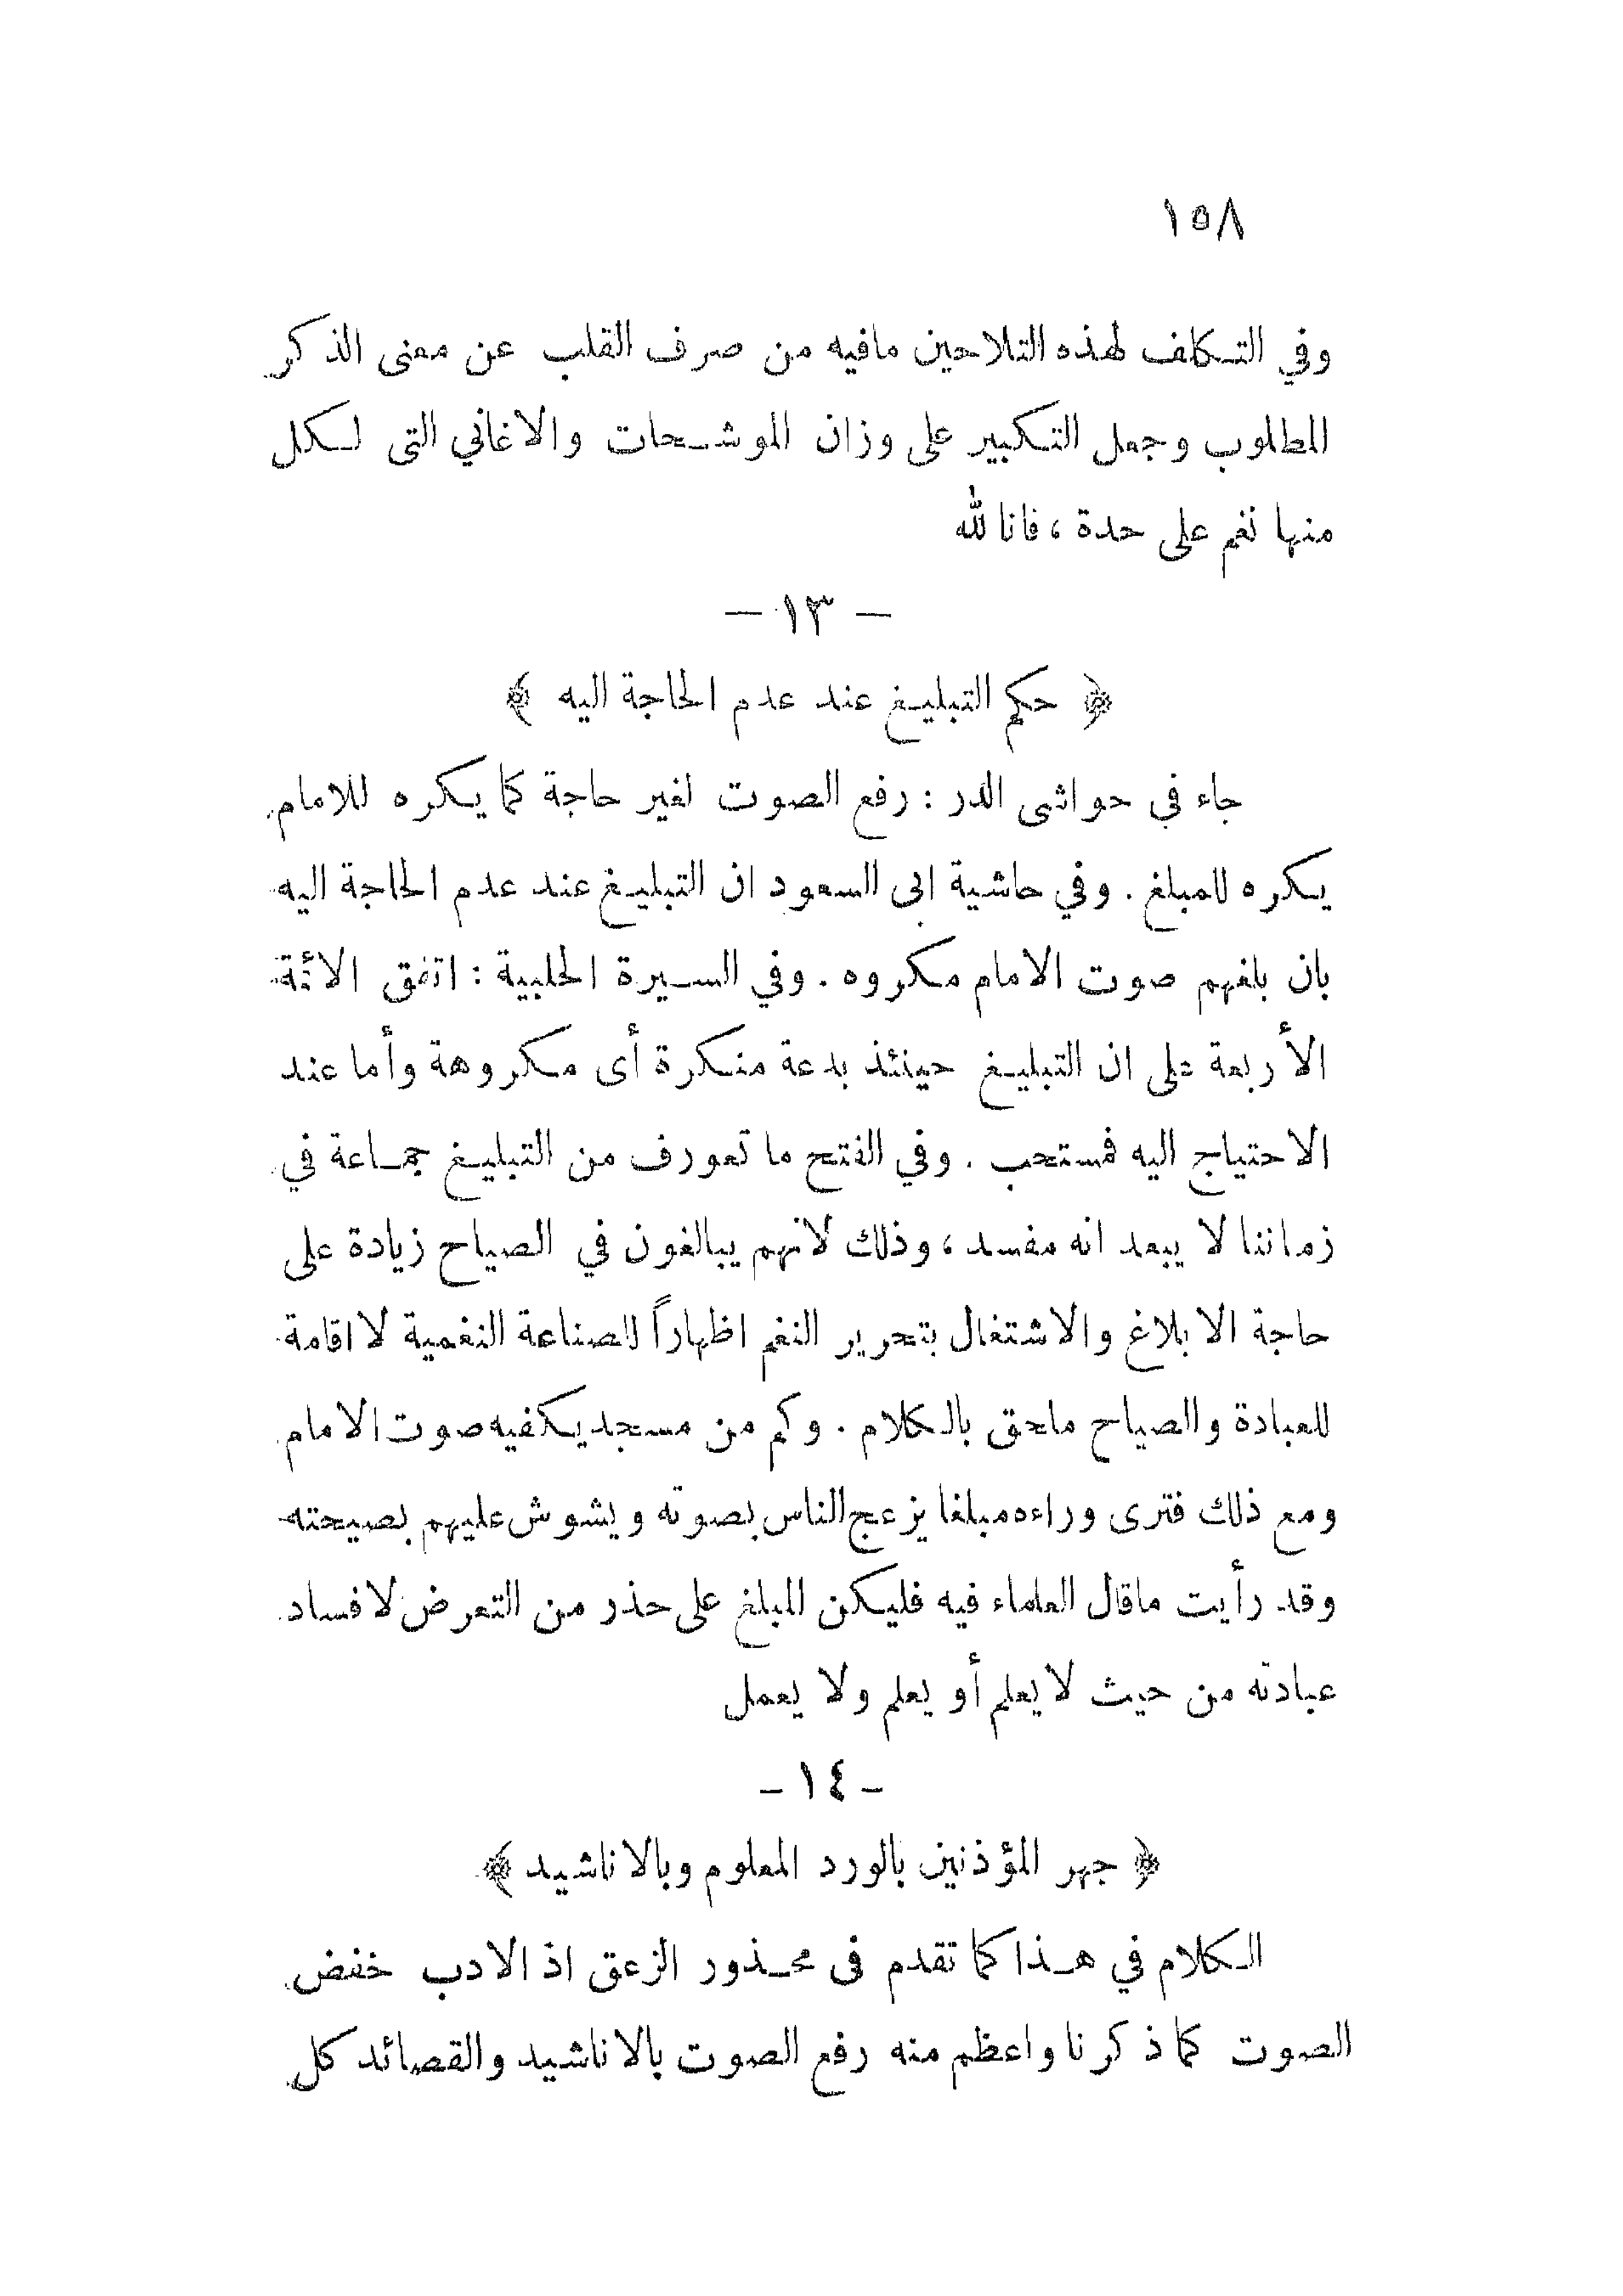 ١٥٨
وفي التكلف لهذه التلاحين مافيه من صرف القلب عن معنى الذكر
المطلوب وجعل التكبير على وزان الموشحات والاغاني التى لكل
منها نغم على حدة ، فانا لله
— ١٣ —
﴿ حكم التبليغ عند عدم الحاجة اليه ﴾
جاء في حواشى الدر : رفع الصوت لغير حاجة كما يكره للامام
يكره للمبلغ . وفي حاشية ابى السعود ان التبليغ عند عدم الحاجة اليه
بان بلغهم صوت الامام مكروه . وفي السيرة الحلبية : اتفق الائمة
الأربعة على ان التبليغ حينئذ بدعة منكرة أى مكروهة وأما عند
الاحتياج اليه فمستحب . وفي الفتح ما تعورف من التبليغ جماعة في
زماننا لا يبعد انه مفسد ، وذلك لانهم يبالغون في الصياح زيادة على
حاجة الابلاغ والاشتغال بتحرير النغم اظهاراً للصناعة النغمية لا اقامة
للعبادة والصياح ملحق بالكلام . وكم من مسجد يكفيه صوت الامام
ومع ذلك فترى وراءه مبلغا يزعج الناس بصوته ويشوش عليهم بصيحته
وقد رأيت ماقال العلماء فيه فليكن المبلغ على حذر من التعرض لافساد
عبادته من حيث لا يعلم أو يعلم ولا يعمل
- ١٤ -
﴿ جهر المؤذنين بالورد المعلوم وبالاناشيد ﴾
الكلام في هذا كما تقدم فى محذور الزعق اذ الادب خفض
الصوت كما ذكرنا واعظم منه رفع الصوت بالاناشيد والقصائد كل